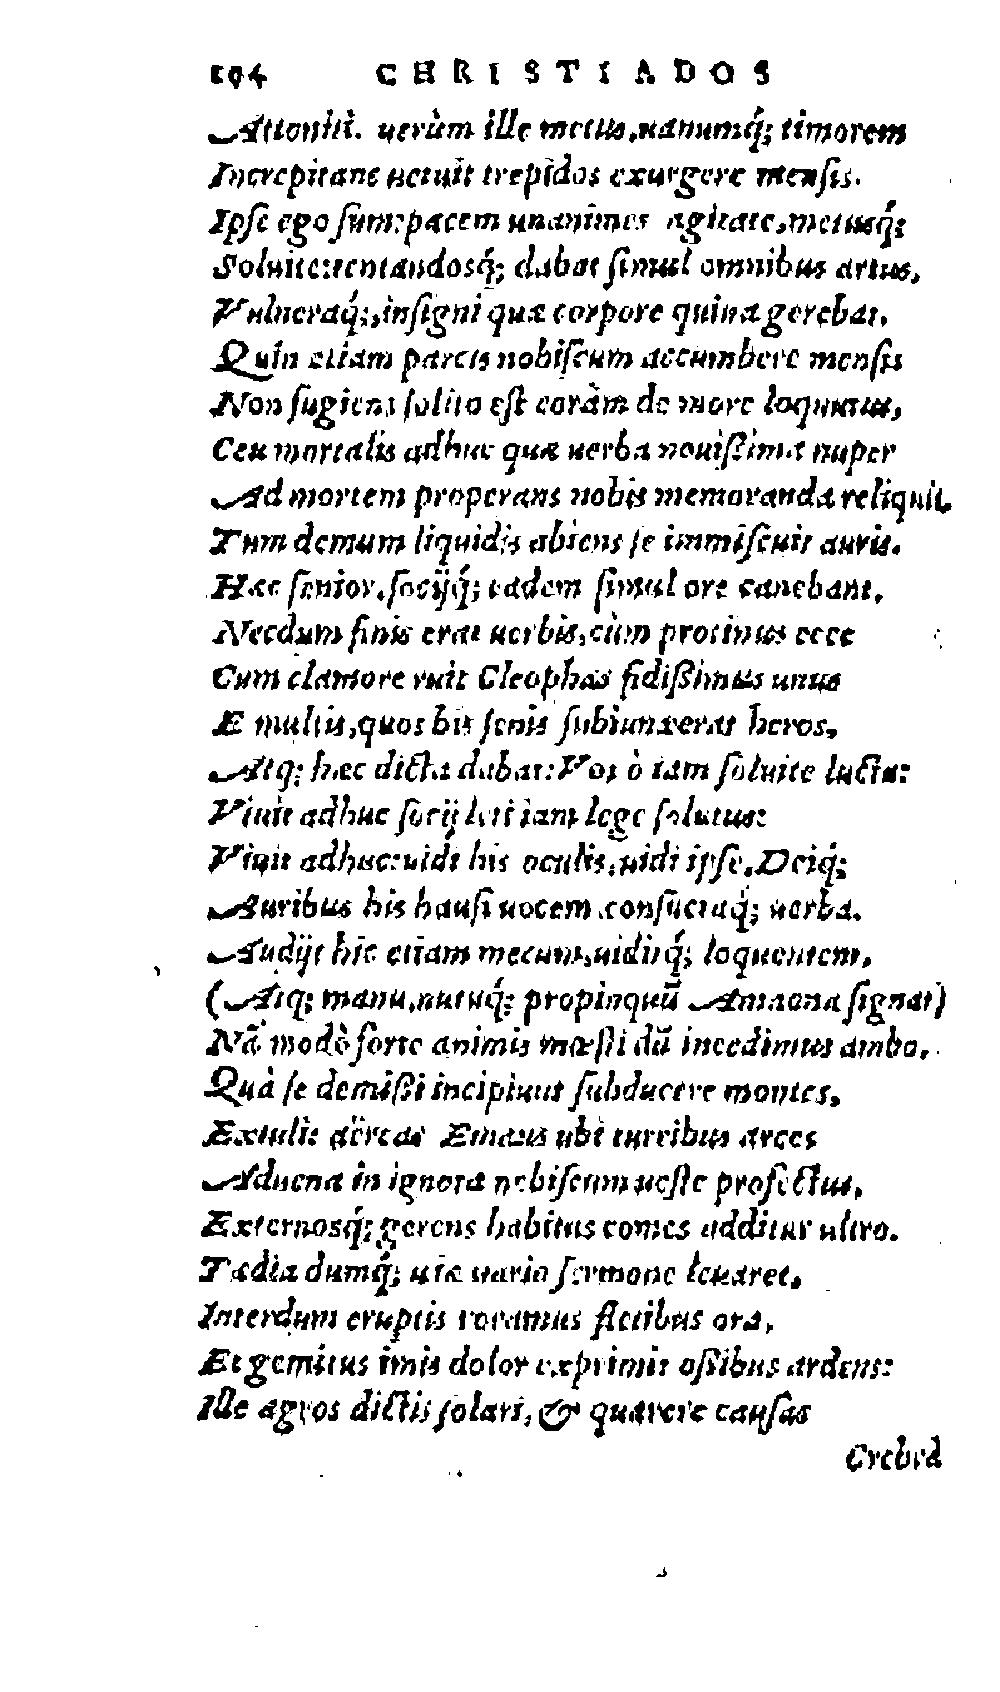 194 CHRISTIADOS
Attoniti. uerùm ille metus, uanumq́; timorem
Increpitans uetuit trepidos exurgere mensis.
Ipse ego sum: pacem unanimes agitate, metusq́;
Soluite: tentandosq́; dabat simul omnibus artus,
Vulneraq́;, insigni quæ corpore quina gerebat.
Quin etiam parcis nobiscum accumbere mensis
Non fugiens solito est coràm de more loquutus,
Ceu mortalis adhuc quæ uerba nouißima nuper
Ad mortem properans nobis memoranda reliquit.
Tum demum liquidis abiens se immiscuit auris.
Hæc senior, socijq́; eadem simul ore canebant,
Necdum finis erat uerbis, cùm protinus ecce
Cum clamore ruit Cleophas fidißimus unus
E multis, quos bis senis subiunxerat heros,
Atq; hæc dicta dabat: Vos ò iam soluite luctu:
Viuit adhuc socij leti iam lege solutus:
Viuit adhuc: uidi his oculis, uidi ipse, Deiq́;
Auribus his hausi uocem consuetaq́; uerba.
Audijt hic etiam mecum, uiditq́; loquentem,
(Atq; manu, nutuq́; propinquū Amaona signat)
Nā modò forte animis mœsti dū incedimus ambo,
Quà se demißi incipiunt subducere montes,
Extulit aëreas Emaus ubi turribus arces
Aduena in ignota nobiscum ueste profectus,
Externosq́; gerens habitus comes additur ultro.
Tædia dumq́; uiæ uario sermone leuaret,
Interdum eruptis roramus fletibus ora,
Et gemitus imis dolor exprimit oßibus ardens:
Ille ægros dictis solari, & quærere causas
Crebra